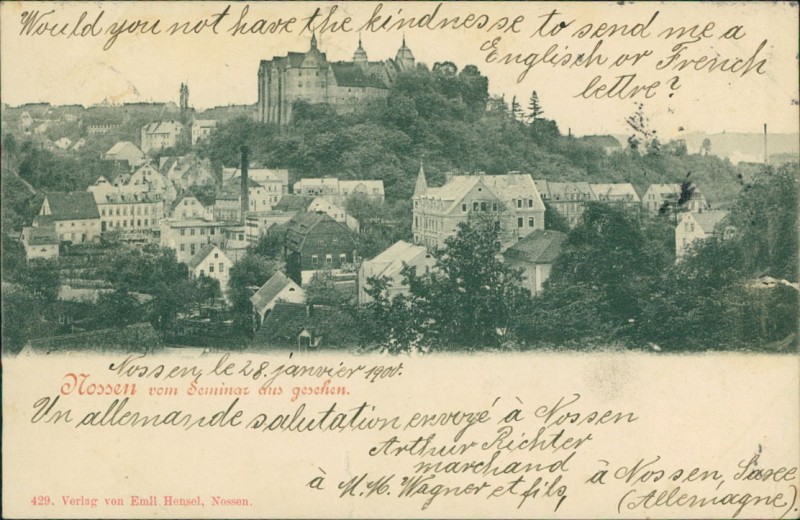 Would you not have the kindnesse to send me a
Englisch or French
lettre?
Nossen, le 28. janvier 1900.
Nossen vom Seminar aus gesehen.
Un allemande salutation envoyé à Nossen
Arthur Richter
marchand
à Nossen, Saxe
à M.M. Wagner et fils,
(Allemagne).
429. Verlag von Emil Hensel, Nossen.